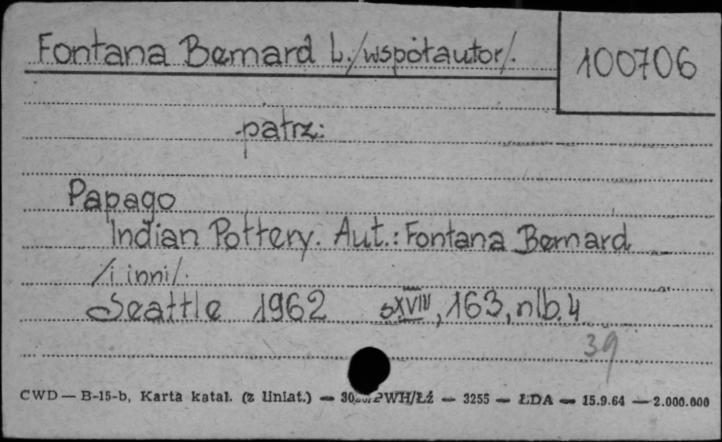 Fontana Bernard L. /współautor/.
100706
patrz:
Papago
Indian Pottery. Aut.: Fontana Bernard
/i inni/.
Seattle 1962 s XVIII, 163, nlb. 4
39
CWD — B-15-b, Karta katal. (z liniat.) — PWH/Łź — 3255 — ŁDA — 15.9.64 — 2.000.000